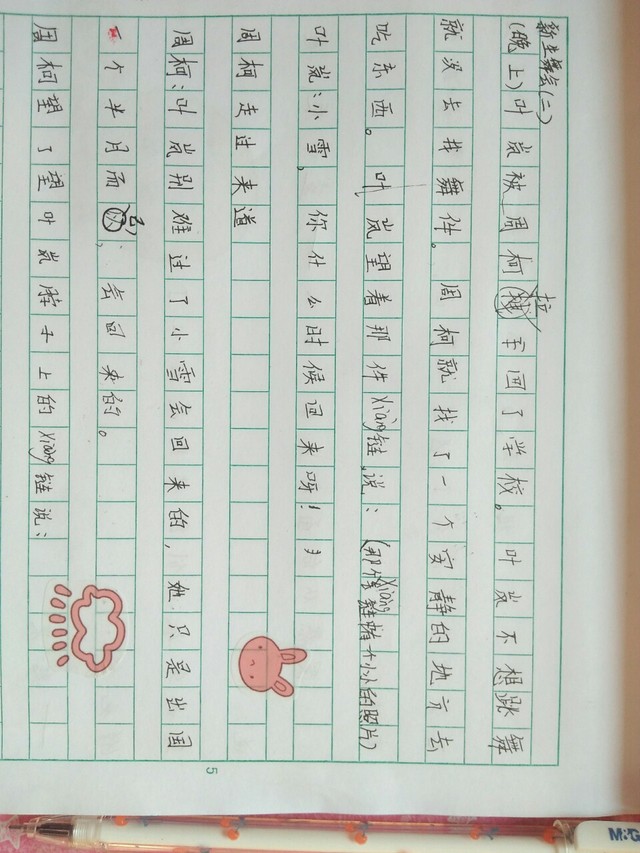 新生舞会(二)
(晚上)叶岚被周柯拉手回了学校。叶岚不想跳舞
就没去找舞伴。周柯就找了一个安静的地方去
吃东西。叶岚望着那件xiàng链说:(那件xiàng链有个小小的照片)
叶岚:小雪,你什么时候回来呀!
周柯走过来道
周柯:叶岚别难过了小雪会回来的,她只是出国
一个半月而已,会回来的。
周柯望了望叶岚脖子上的xiàng链说:
5
M&G